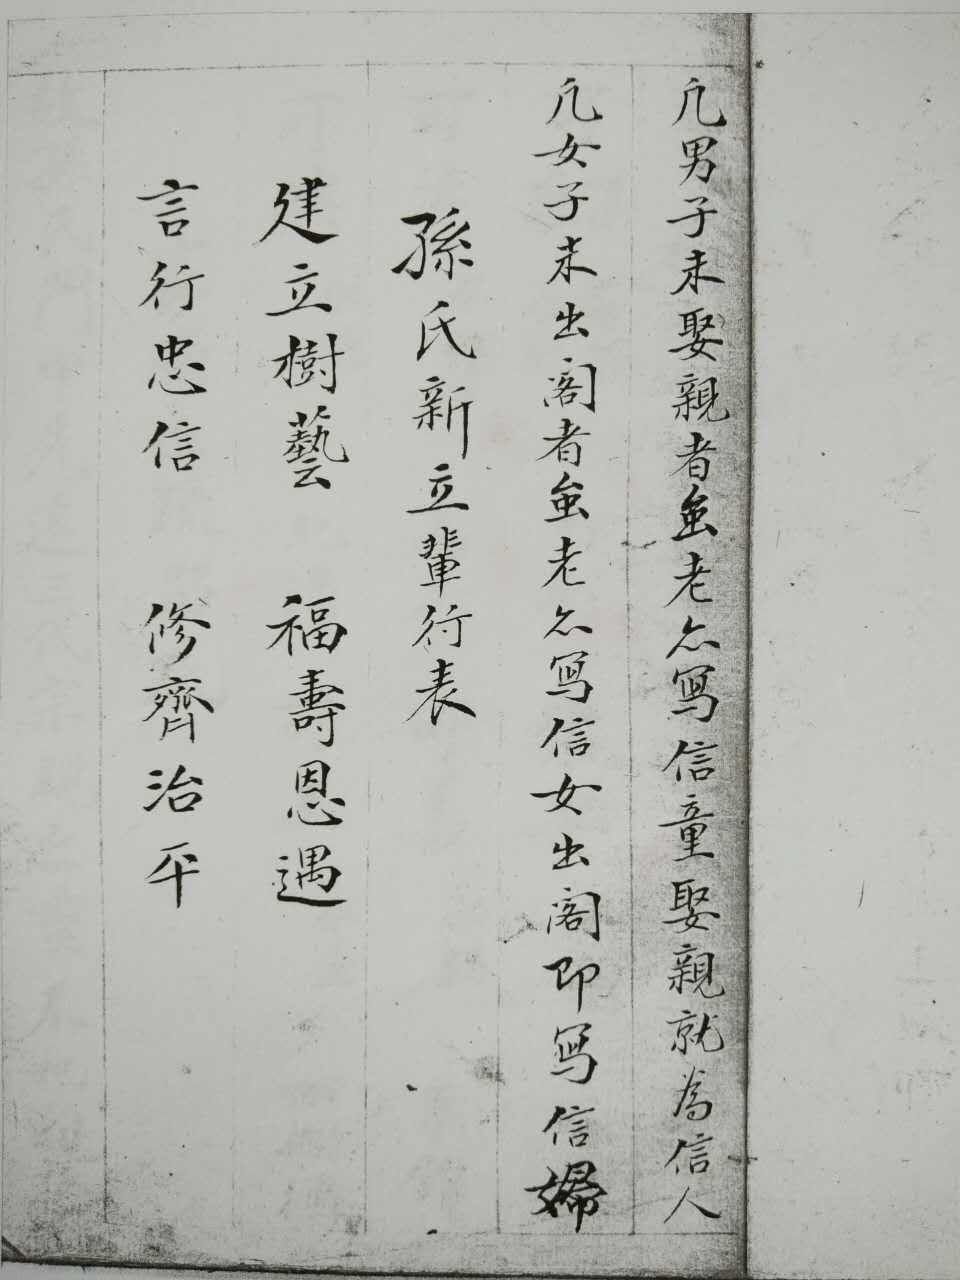 凡男子未娶親者虽老亦寫信童娶親就為信人
凡女子未出阁者虽老亦寫信女出阁即寫信婦
孫氏新立輩行表
建立樹藝 福壽恩遇
言行忠信 修齊治平